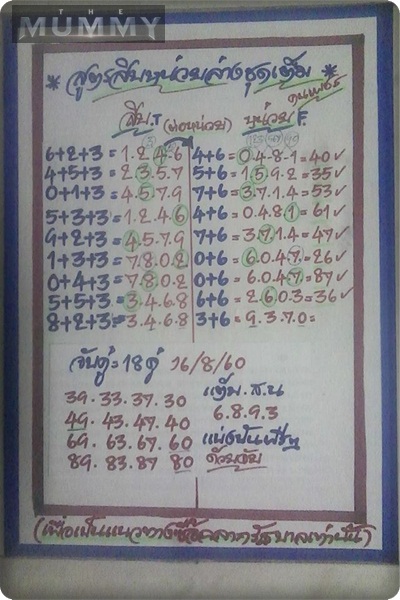 THE
MUMMY
* สูตรสิบหน่วยล่างชุดเต็ม *
คนเพชร
สิบ.T (ต่อหน่วย) หน่วย F.
6+2+3=1.2.4.6 4+6=0.4.8.1=40✓
4+5+3=2.3.5.7 5+6=1.5.9.2=35✓
0+1+3=4.5.7.9 7+6=3.7.1.4=53✓
5+3+3=1.2.4.6 4+6=0.4.8.1=61✓
9+2+3=4.5.7.9 7+6=3.7.1.4=47✓
1+3+3=7.8.0.2 0+6=6.0.4.7=26✓
0+4+3=7.8.0.2 0+6=6.0.4.7=87✓
5+5+3=3.4.6.8 6+6=2.6.0.3=36✓
8+2+3=3.4.6.8 3+6=9.3.7.0=
จับคู่=18คู่ 16/8/60
39.33.37.30 แต้ม.ส.น
49.43.47.40 6.8.9.3
69.63.67.60 แบ่งปันฟรีๆ
89.83.87 80 ด้วยจับ
(เพื่อเป็นแนวทางซื้อสลากรัฐบาลเท่านั้น)